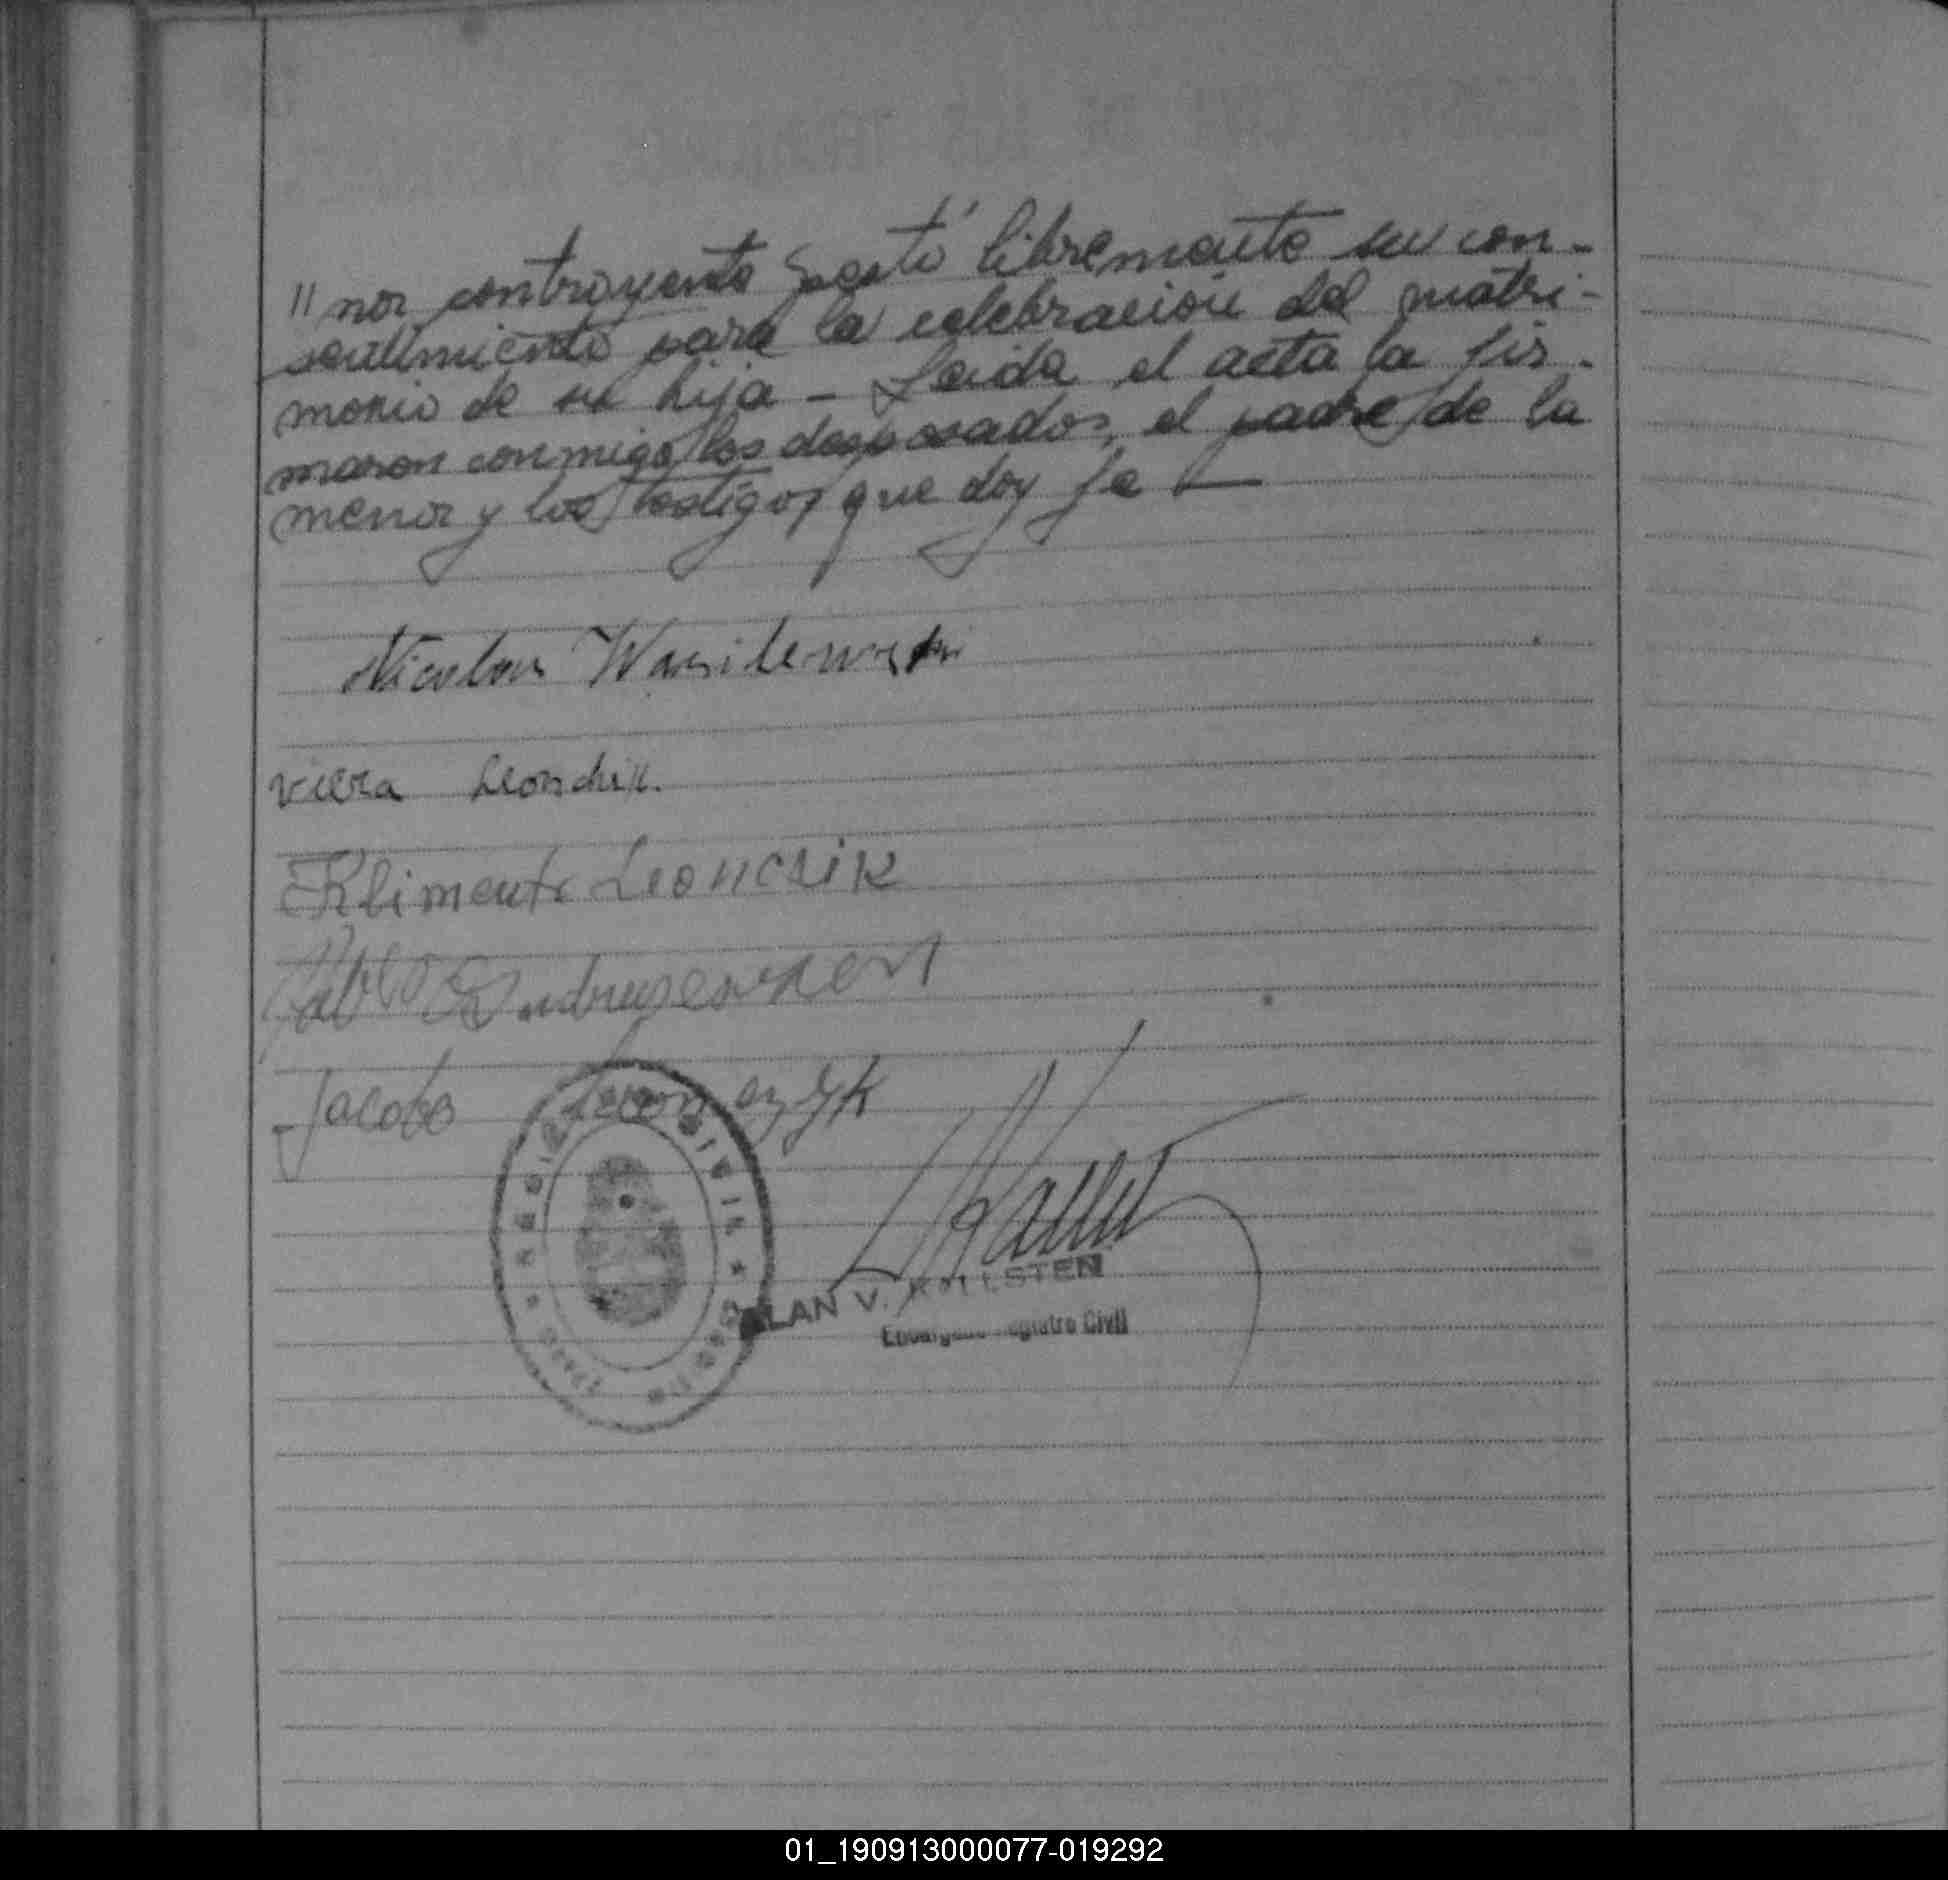 "nor contrayente prestó libremente su con-
sentimiento para la celebración del matri-
monio de su hija - Leida el acta la fir-
maron conmigo los desposados, el padre de la
menor y los testigos que doy fe —
Nicolas Wasilewski
viera Leonchik.
Klimento Leoncsik
Pablo
Jacobo
REGISTRO CIVIL
ALAN V. KALLSTEN
Encargado Registro Civil
01_190913000077-019292